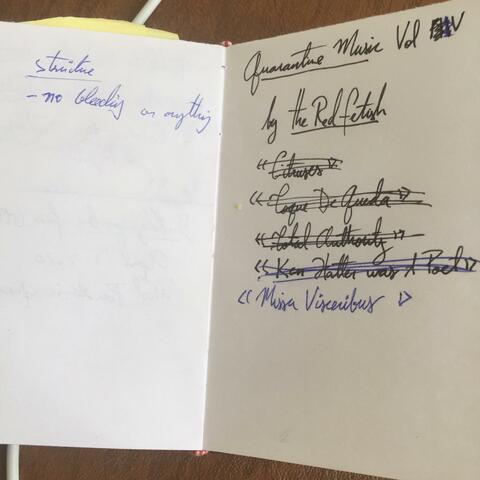 structure
- no bleeding or anything
Quarantine Music Vol IV
by the Red Fetish
<< Citruses >>
<< Toque De Queda >>
<< Total Authority >>
<< Ken Hatter was A Poet >>
<< Missa Visceribus >>